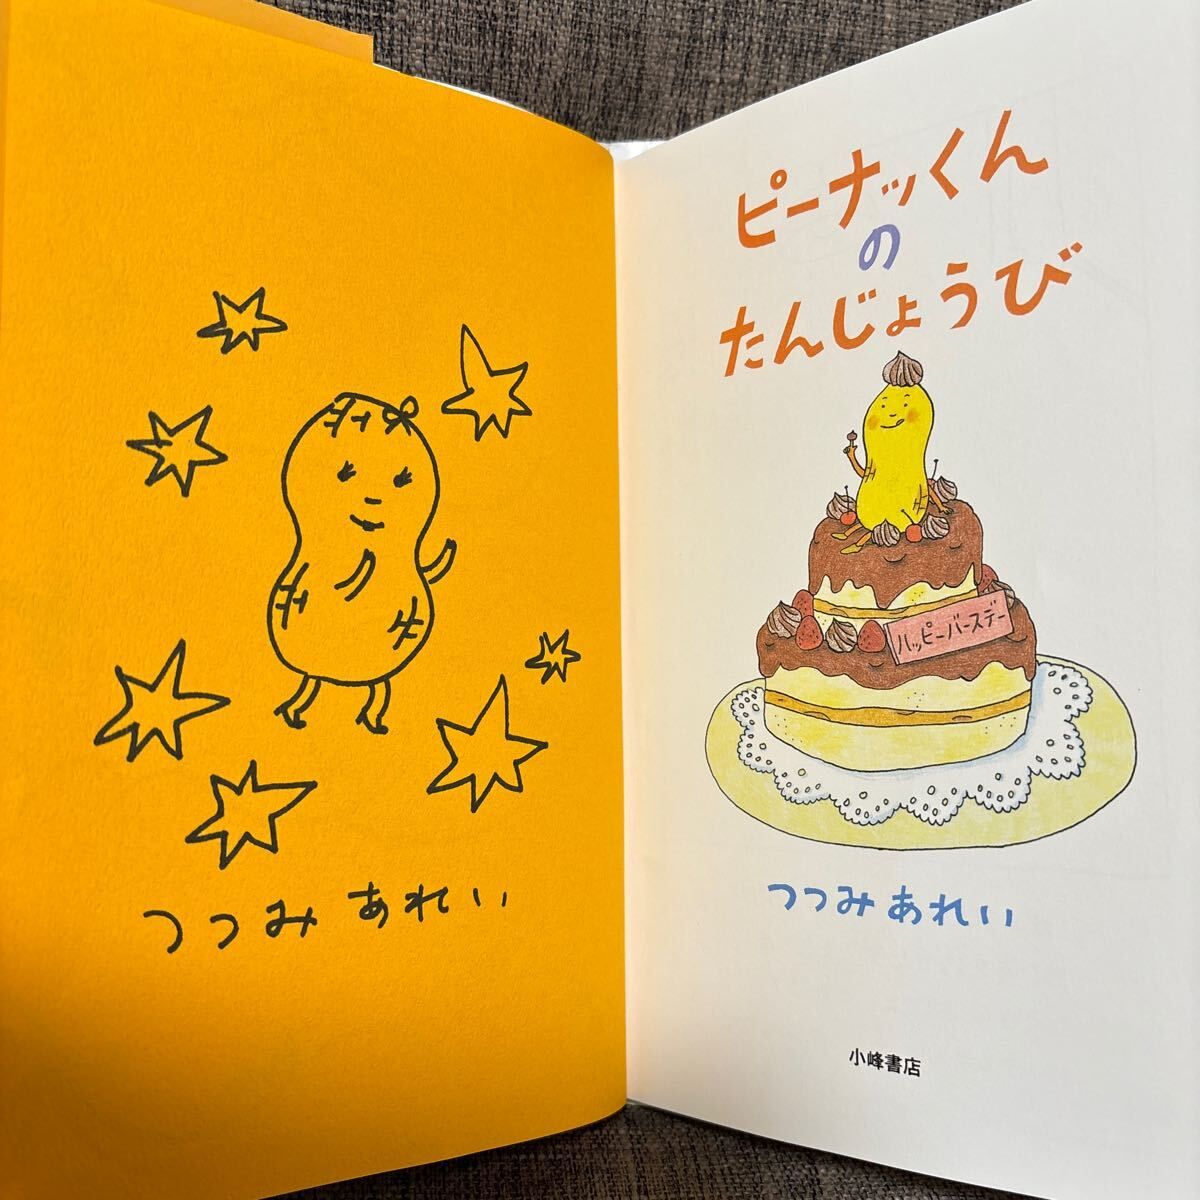 つつみ あれい
ピーナッくん
の
たんじょうび
ハッピーバースデー
つつみ あれい
小峰書店